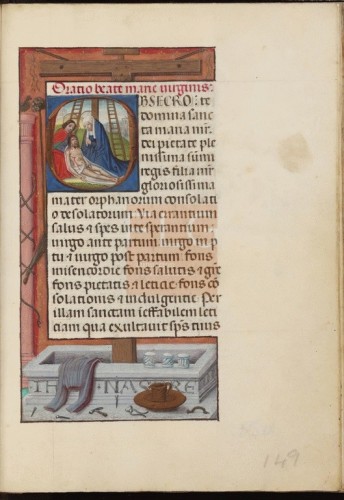 Oratio beate marie virginis.
OBSECRO te
domina sanc
ta maria mr
dei pietate ple
nissima sumi
regis filia mr
gloriosissima
mater orphanorum consolati
o desolatorum. Via errantium
salus & spes in te sperantium.
virgo ante partum. virgo in p
tu & virgo post partum. fons
misericordie fons salutis & gre
fons pietatis & leticie. fons cō
solationis & indulgentie. Per
illam sanctam ineffabilem leti
ciam qua exultavit sps tuus
IH NASARE
149